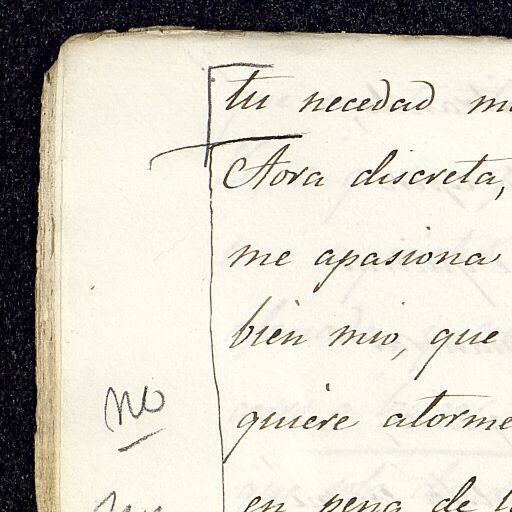 tu necedad
Aora discreta,
me apasiona
bien mio, que
no
quiere atorme
en pena de